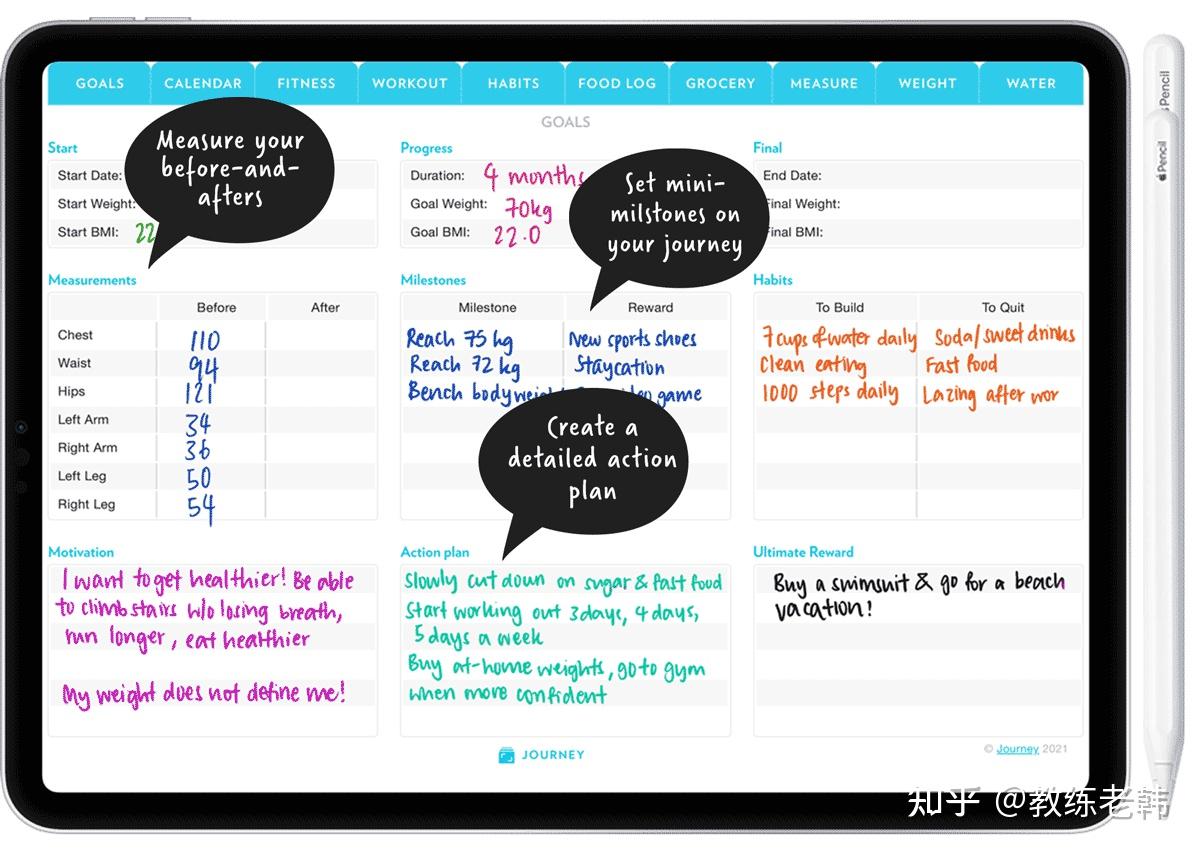 GOALS CALENDAR FITNESS WORKOUT HABITS FOOD LOG GROCERY MEASURE WEIGHT WATER
GOALS
Measure your
before-and-
afters
Set mini-
milstones on
your journey
Create a
detailed action
plan
Start
Start Date:
Start Weight:
Start BMI: 22
Progress
Duration: 4 months
Goal Weight: 70kg
Goal BMI: 22.0
Final
End Date:
Final Weight:
Final BMI:
Measurements
Before After
Chest 110
Waist 94
Hips 121
Left Arm 34
Right Arm 36
Left Leg 50
Right Leg 54
Milestones
Milestone Reward
Reach 75 kg New sports shoes
Reach 72 kg Staycation
Bench bodyweight game
Habits
To Build To Quit
7 cups of water daily Soda/sweet drinks
Clean eating Fast food
1000 steps daily Lazing after wor
Motivation
I want to get healthier! Be able
to climb stairs w/o losing breath,
run longer, eat healthier
My weight does not define me!
Action plan
Slowly cut down on sugar & fast food
Start working out 3 days, 4 days,
5 days a week
Buy at-home weights, go to gym
when more confident
Ultimate Reward
Buy a swimsuit & go for a beach
vacation!
JOURNEY
© Journey 2021
Pencil
Pencil
知乎 @教练老韩